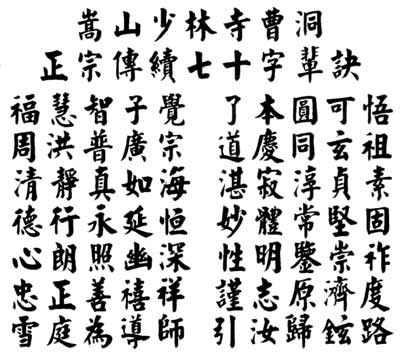 嵩山少林寺曹洞
正宗傳續七十字輩訣
福慧智子覺 了本圓可悟
周洪普廣宗 道慶同玄祖
清靜真如海 湛寂淳貞素
德行永延恒 妙體常堅固
心朗照幽深 性明鑒崇祚
忠正善禧祥 謹志原濟度
雪庭為導師 引汝歸鉉路